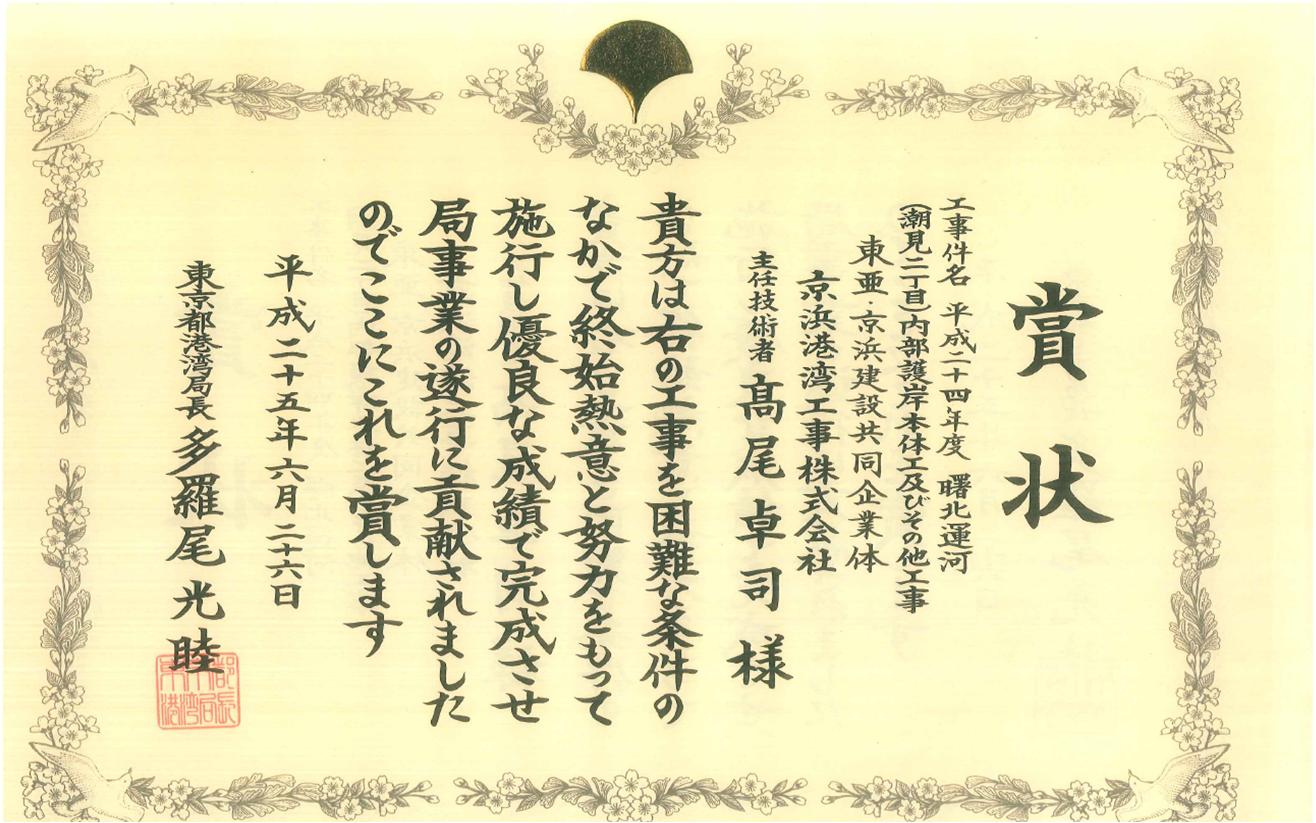 賞状
工事件名 平成二十四年度 曙北運河
(潮見二丁目)内部護岸本体工及びその他工事
東亜・京浜建設共同企業体
京浜港湾工事株式会社
主任技術者 髙尾卓司様
貴方は右の工事を困難な条件の
なかで終始熱意と努力をもって
施行し優良な成績で完成させ
局事業の遂行に貢献されました
のでここにこれを賞します
平成二十五年六月二十六日
東京都港湾局長 多羅尾光睦